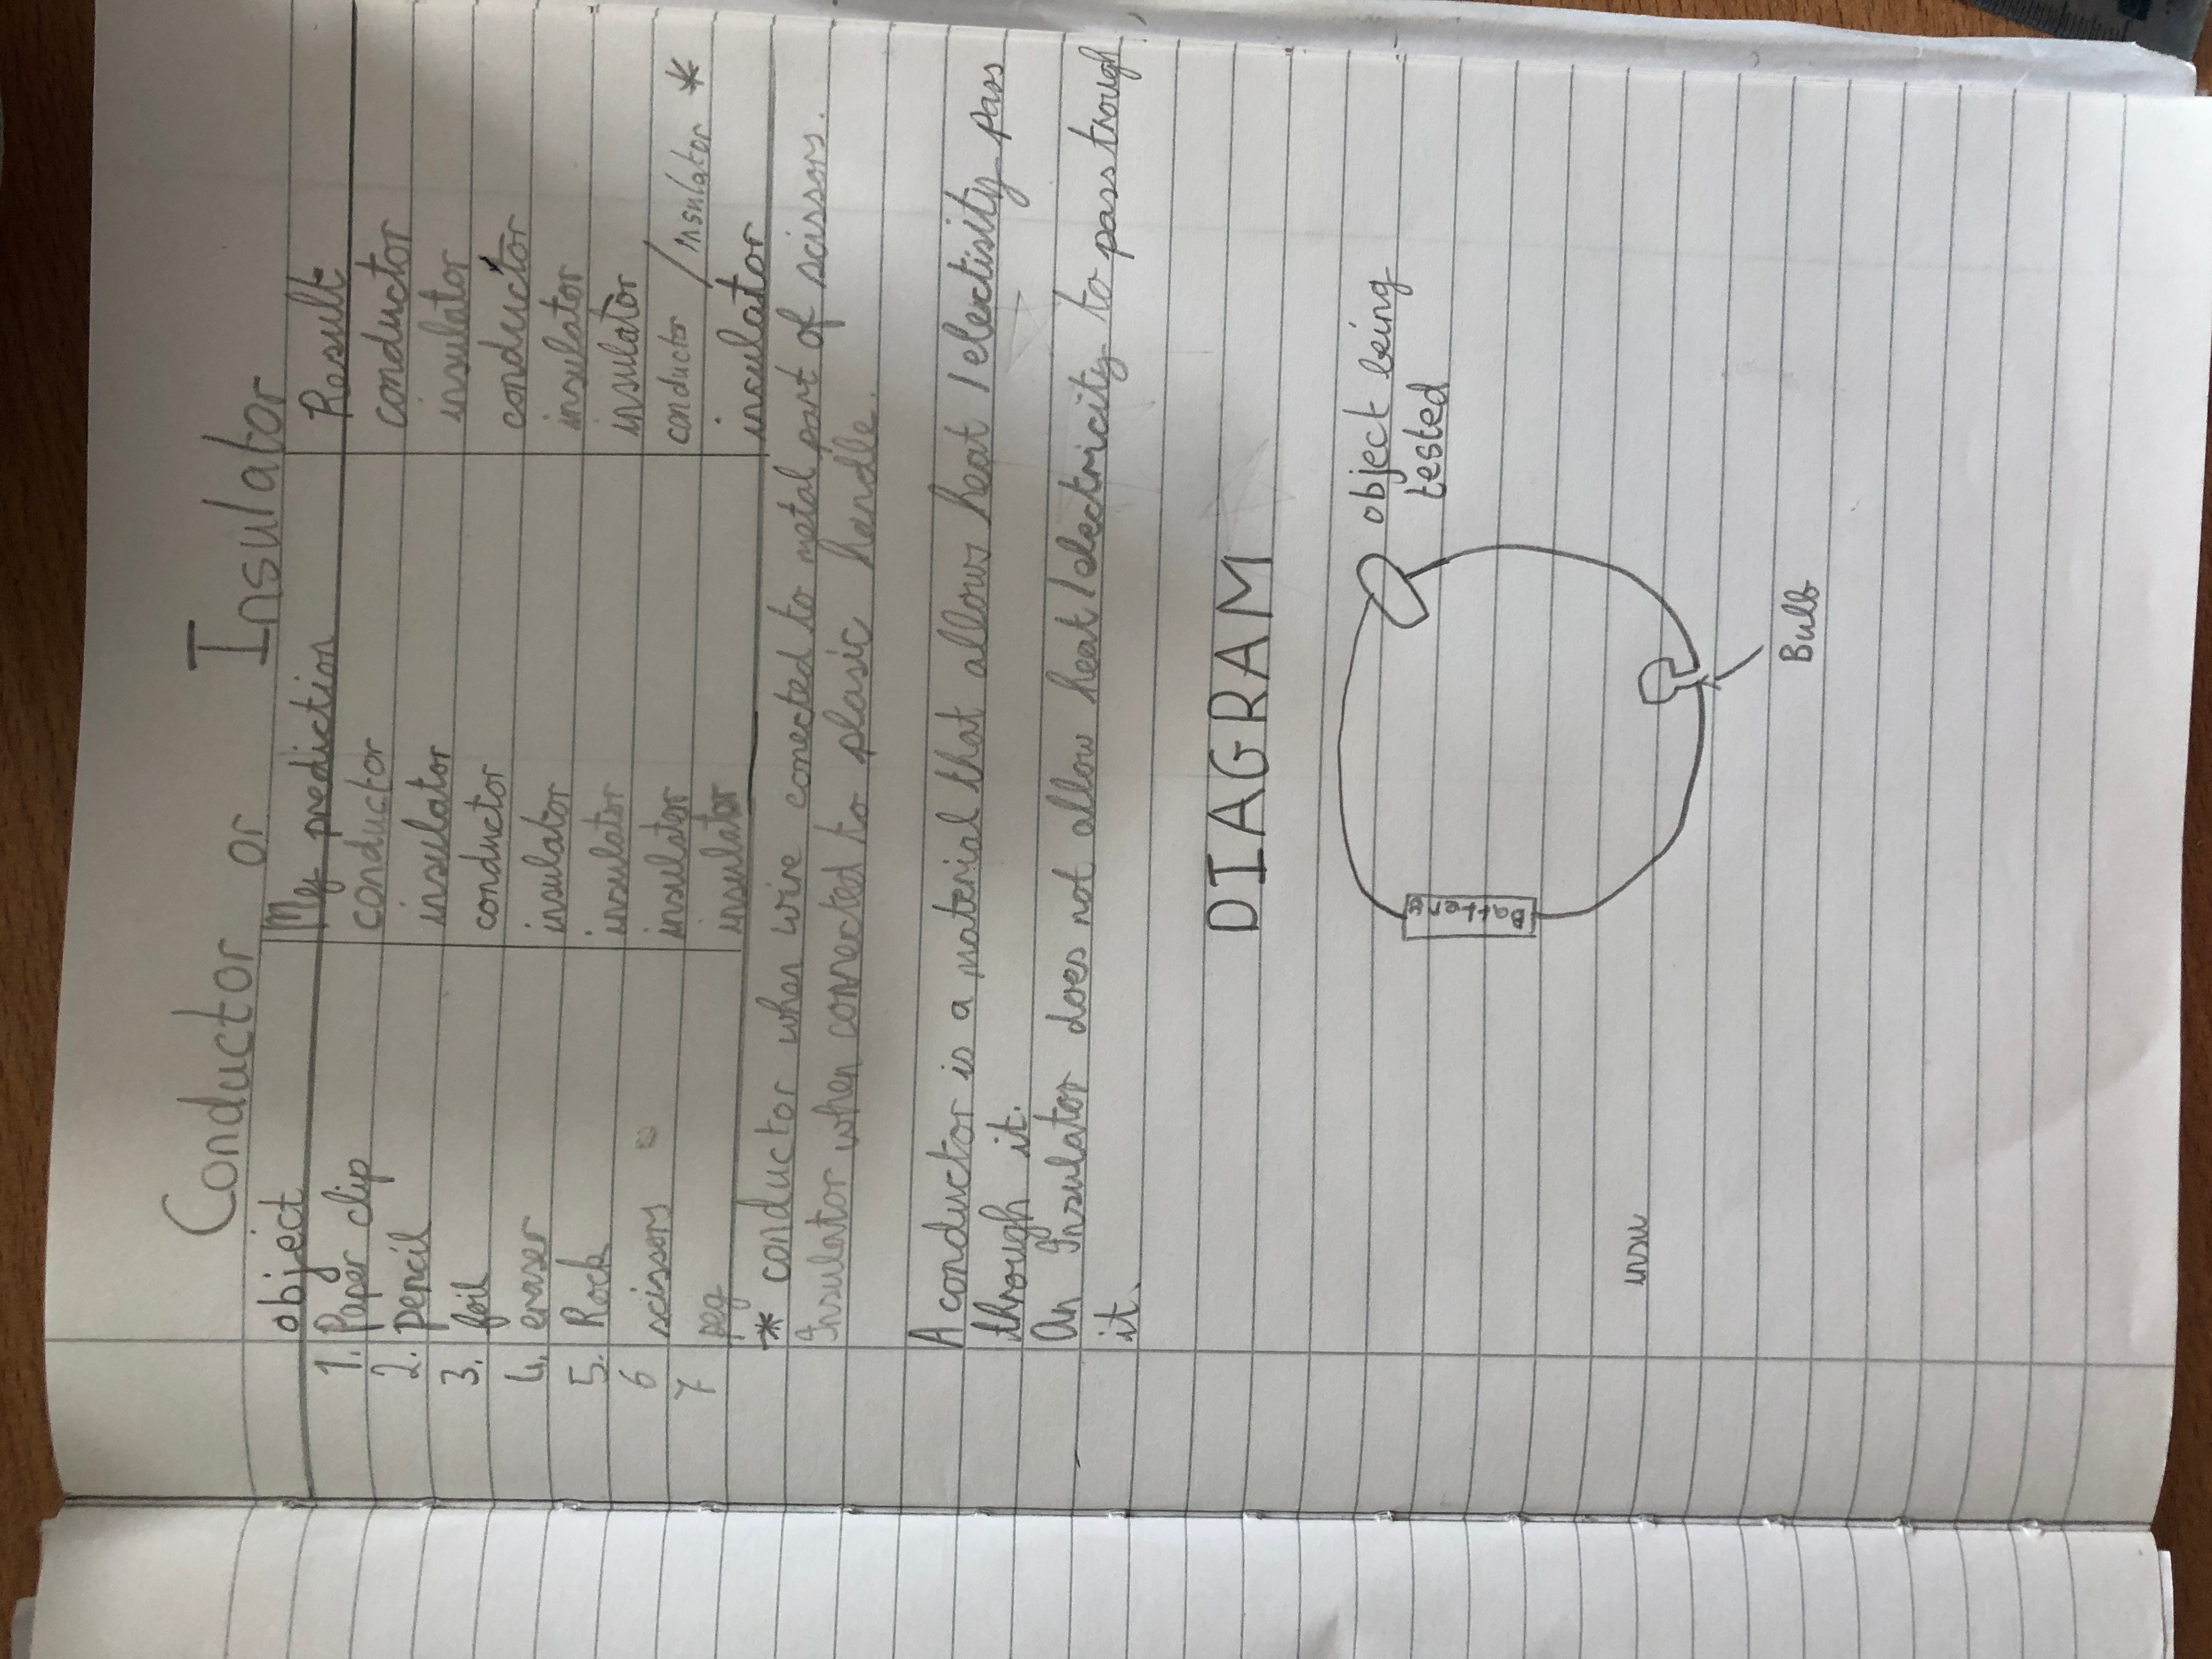 Conductor or Insulator
object My prediction Result
1. Paper clip conductor conductor
2. pencil insulator insulator
3. foil conductor conductor
4. eraser insulator insulator
5. Rock insulator insulator
6 scissors insulator conductor / Insulator *
7 peg insulator insulator
* conductor when wire conected to metal part of scissors.
Insulator when connected to plasic handle.
A conductor is a material that allows heat / electisity pass
through it.
An Insulator does not allow heat / electricity to pass trough
it.
DIAGRAM
object being
tested
Battery
Bulb
insu